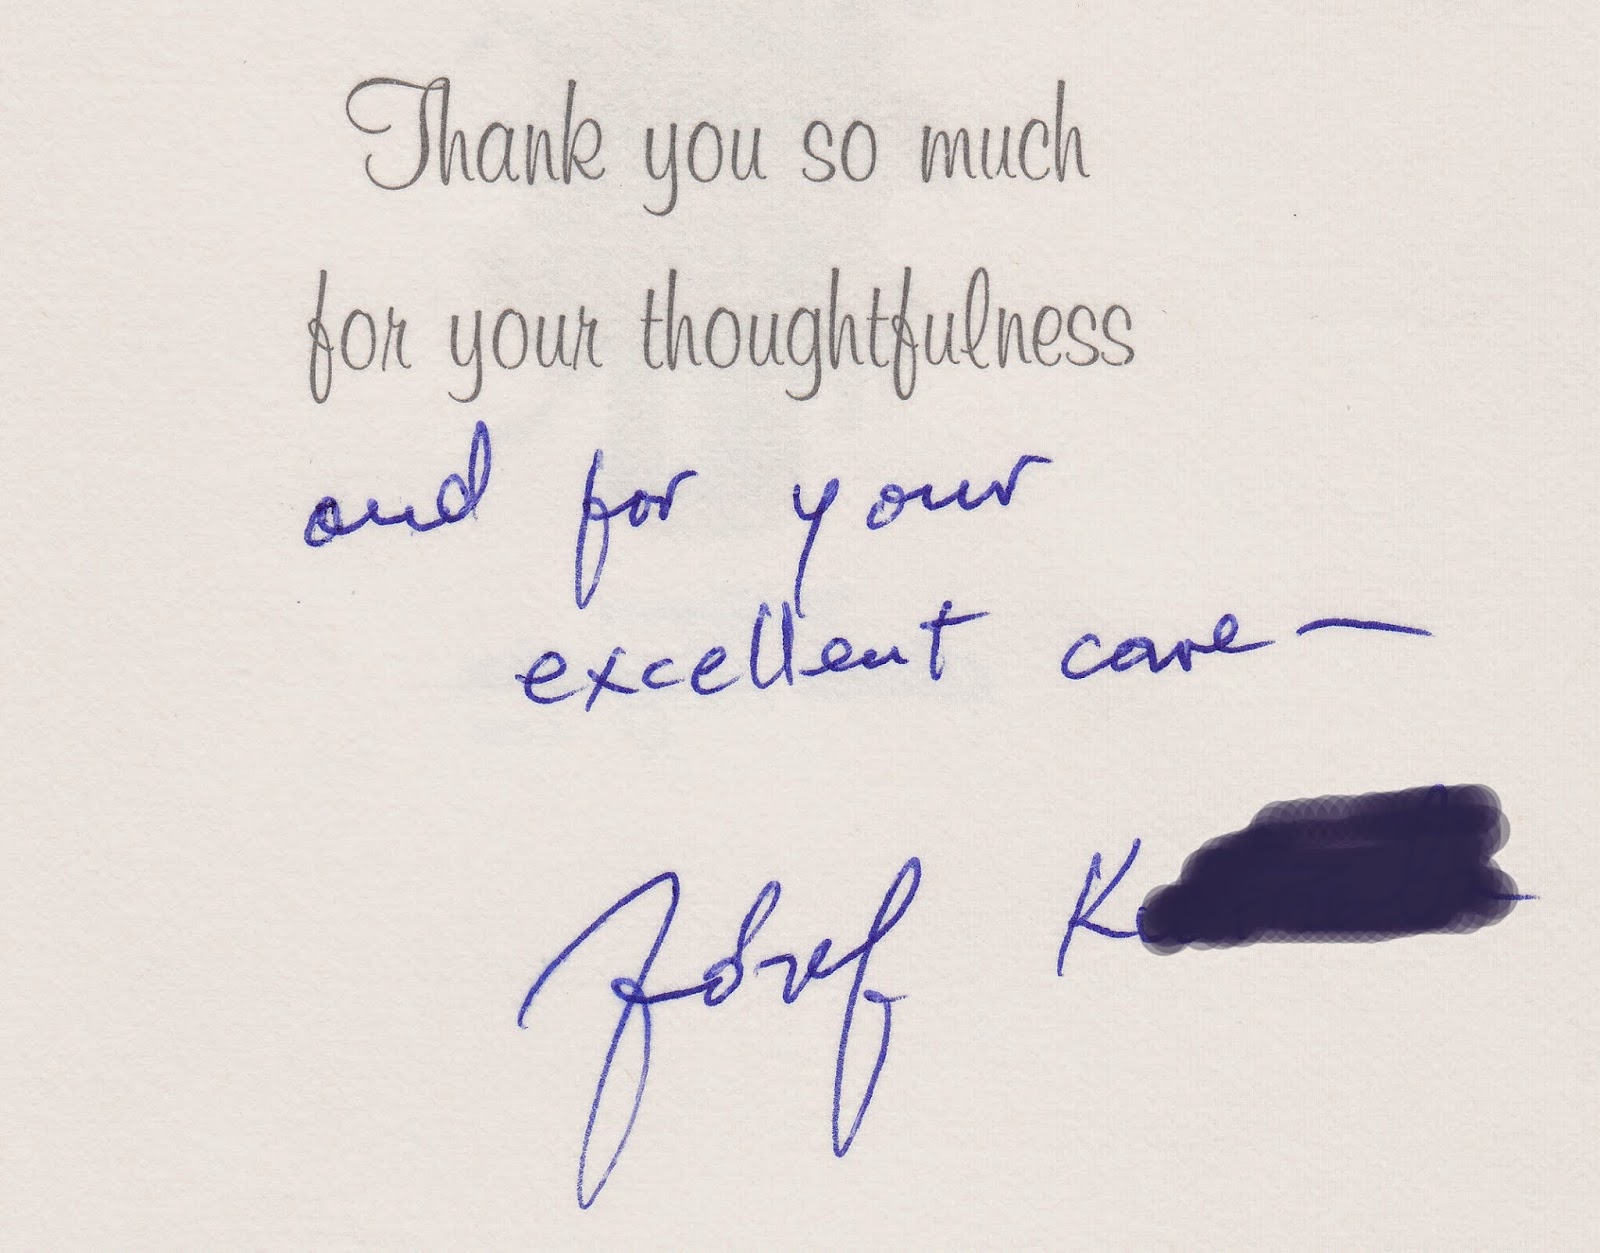 Thank you so much
for your thoughtfulness
and for your
excellent care —
K